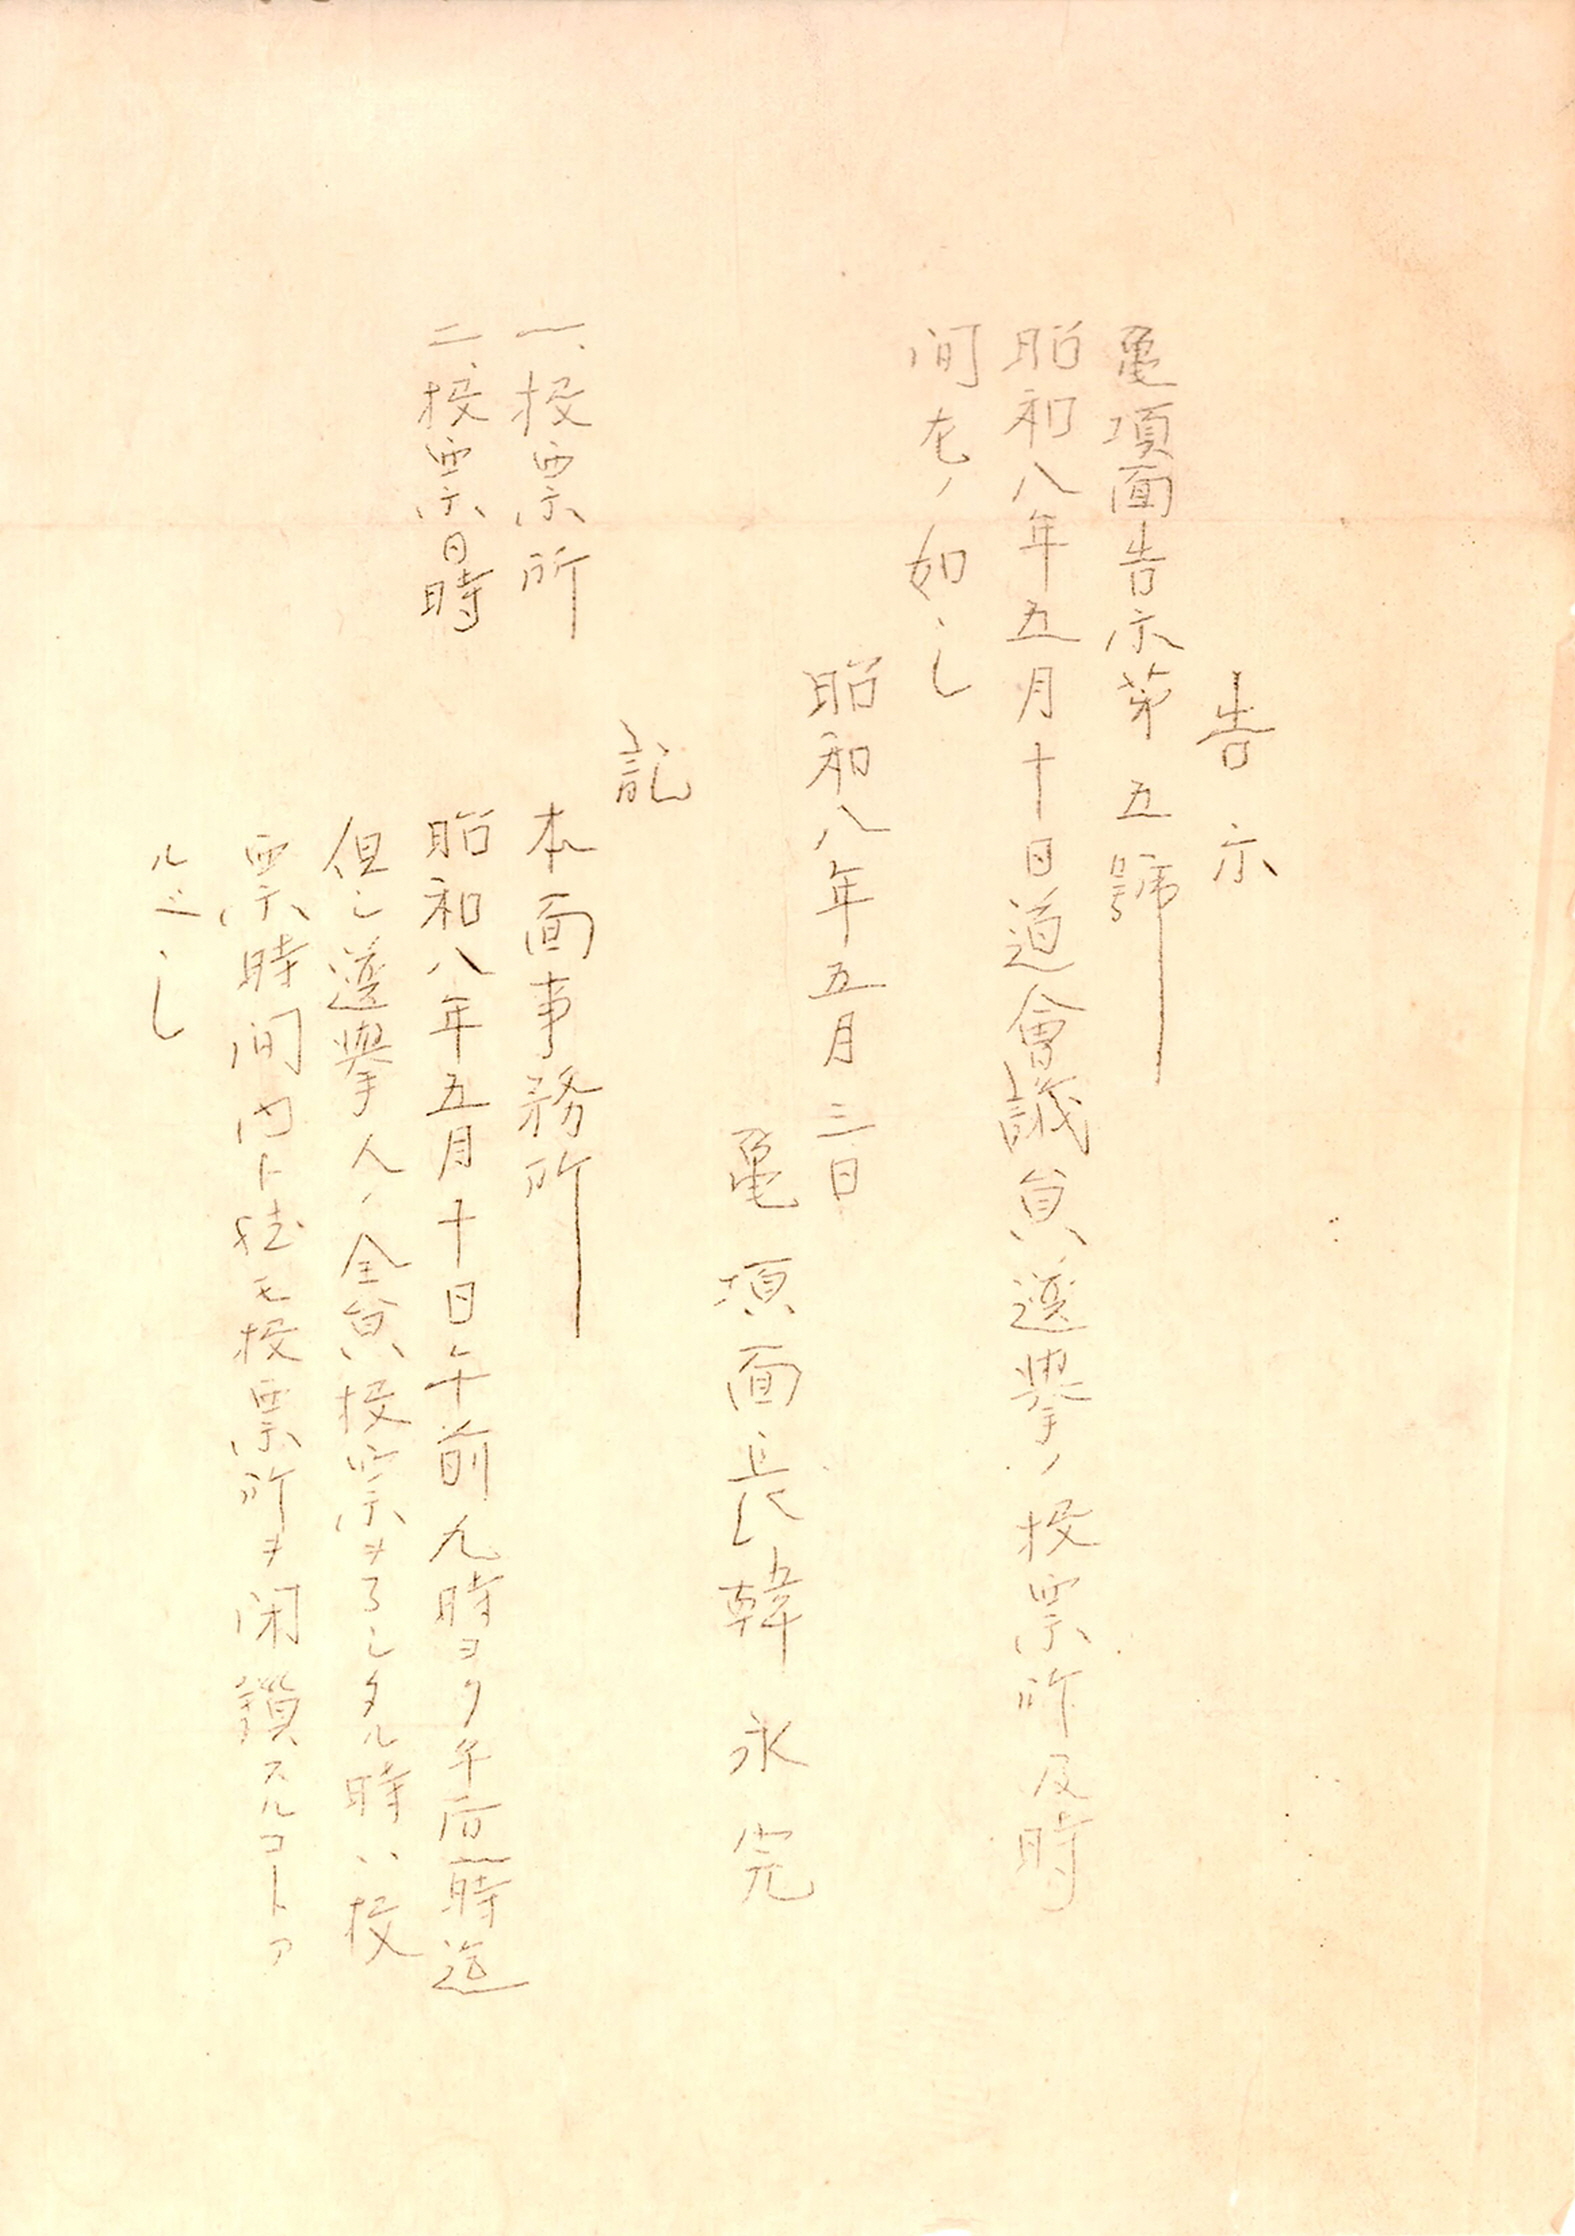 告示
亀項面告示第五號
昭和八年五月十日道會議員選擧ノ投票所及時
间左ノ如シ
昭和八年五月三日
亀項面長韓永完
記
一、投票所 本面事務所
二、投票日時 昭和八年五月十日午前九時ヨリ午后一時迄
但シ選擧人ノ全員投票ヲ了シタル時ハ投
票時间内ト雖モ投票所ヲ闭鎖スルコトア
ルヘシ